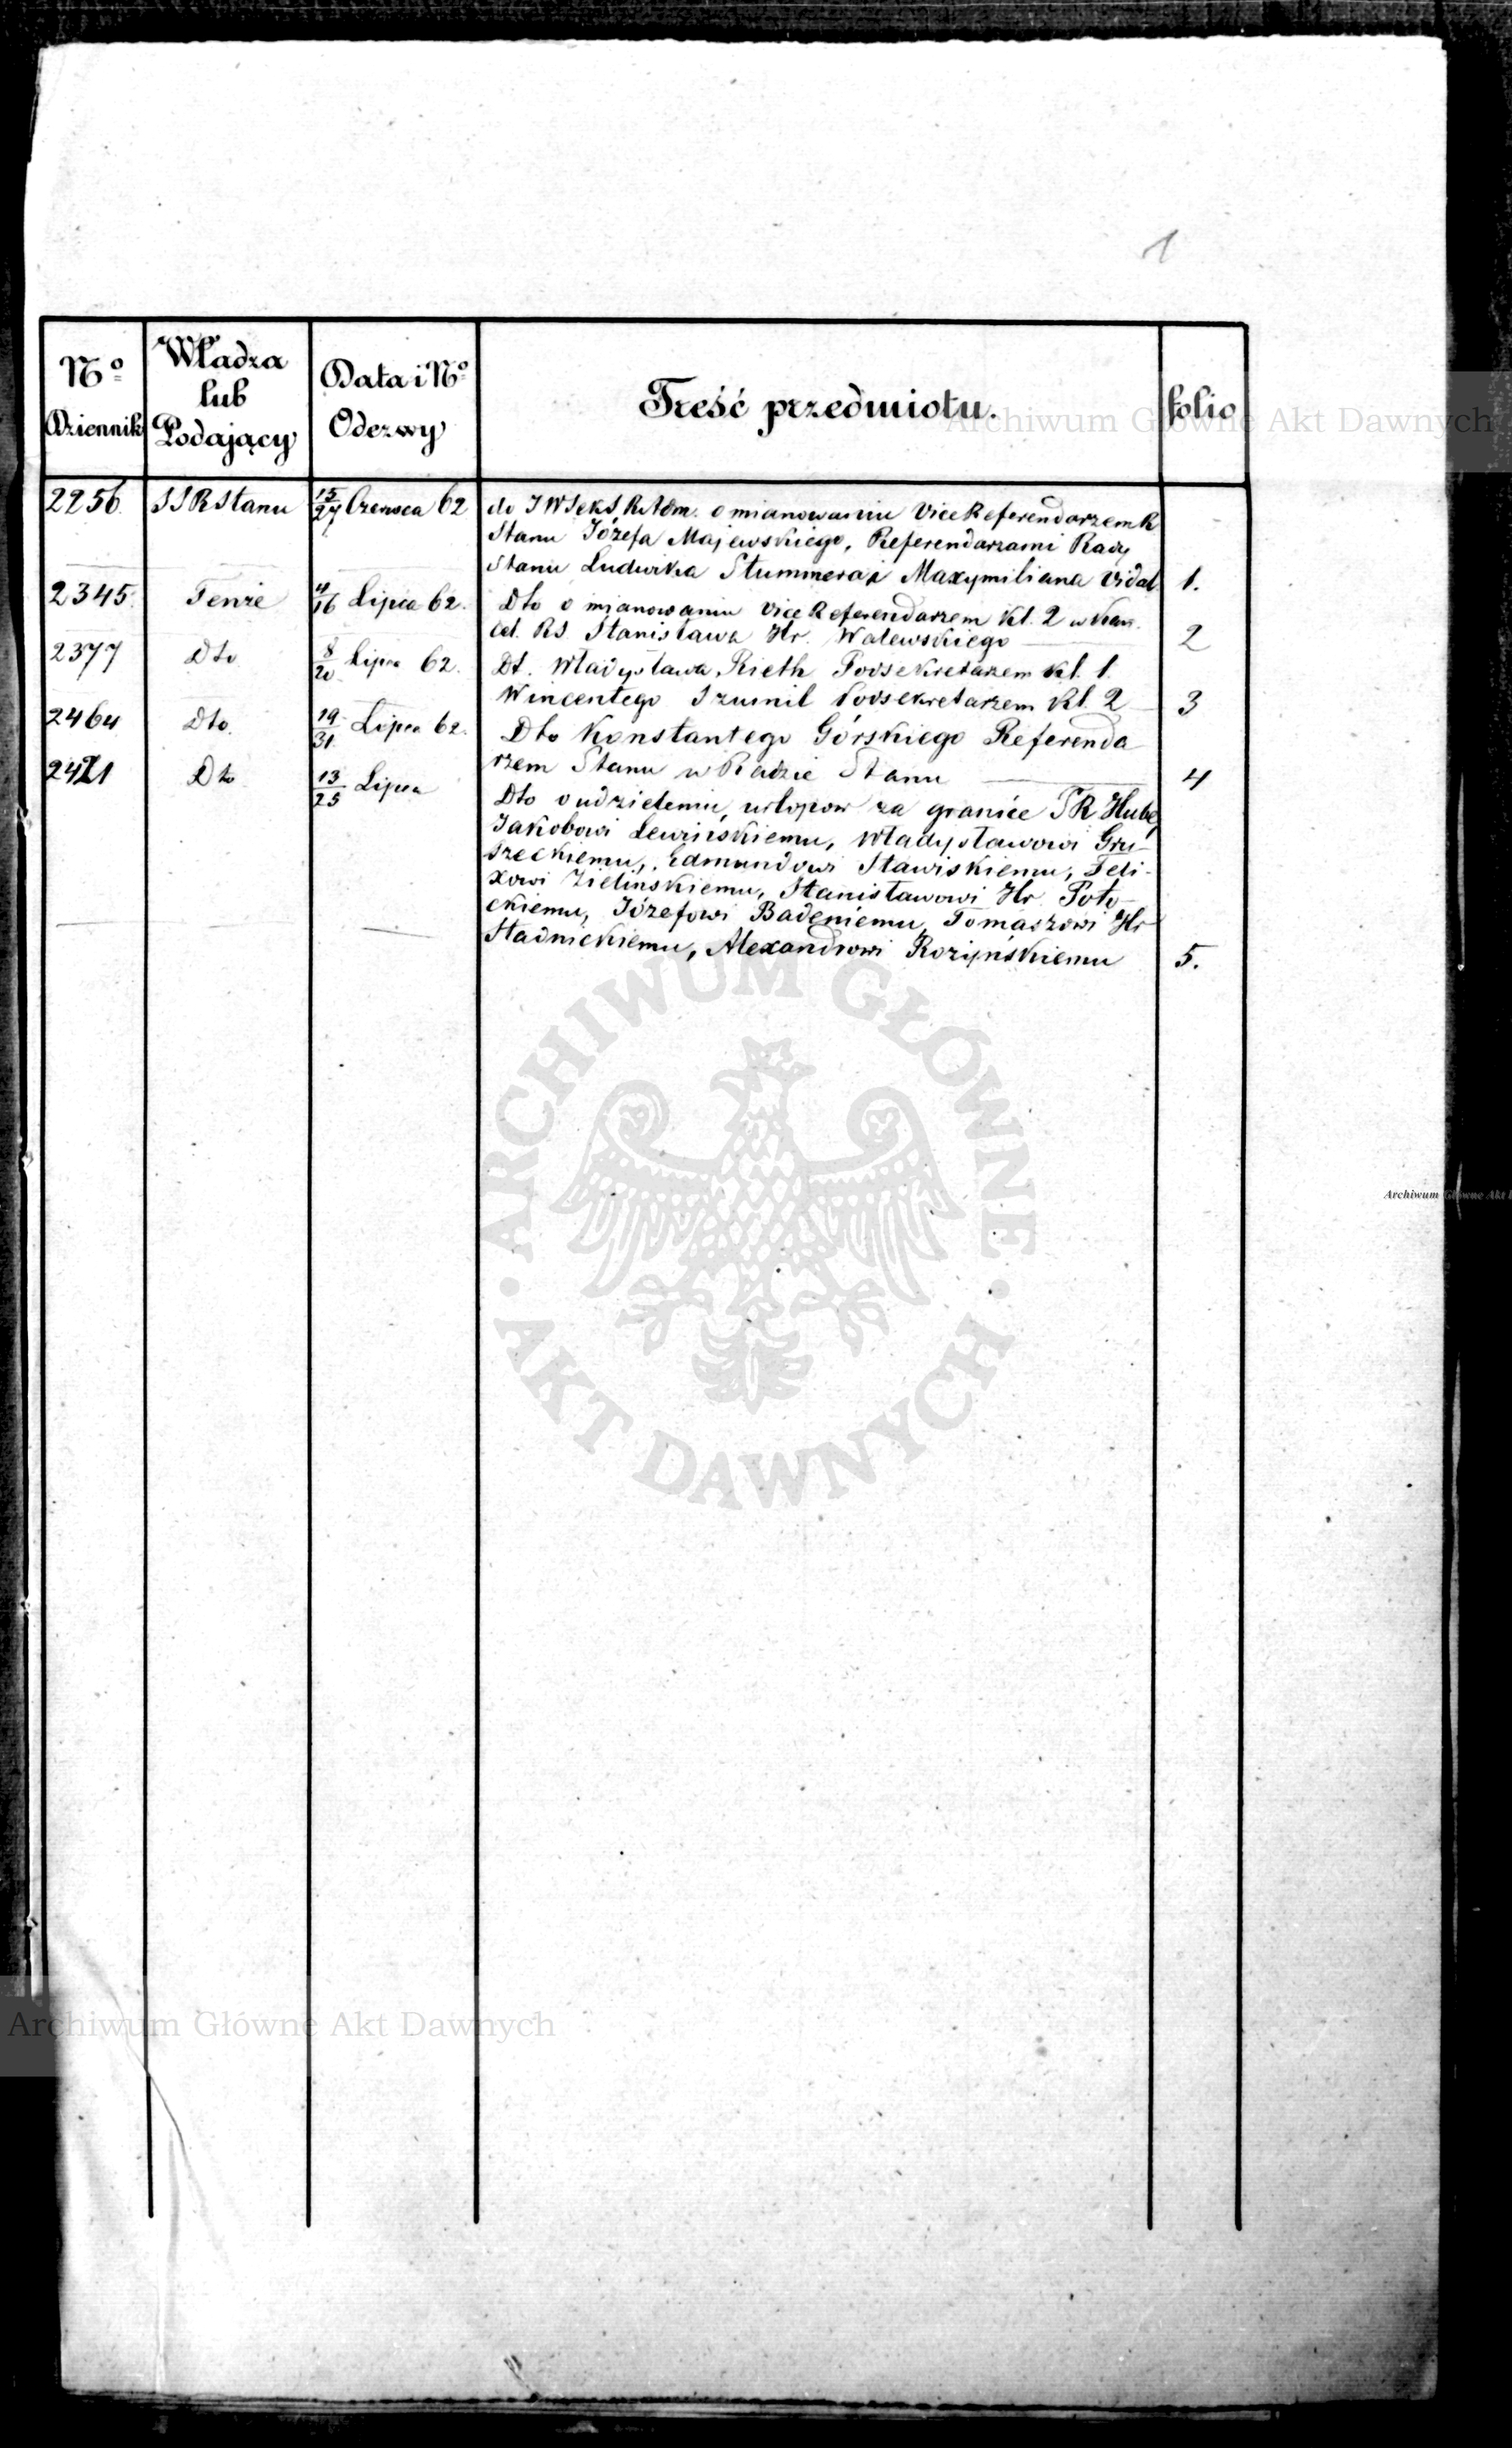 1
Nº Dziennik
Władza lub Podający
Data i Nº Odezwy
Treść przedmiotu.
folio
2256. SSRStanu 15/27 Czerwca 62 do JWSekS RAdm. o mianowaniu ViceReferendarzem R
Stanu Józefa Majewskiego, Referendarzami Rady
Stanu Ludwika Stummera i Maxymiliana Vidal 1.
2345. Tenże 4/16 Lipca 62. Dto o mianowaniu ViceReferendarzem Kl. 2 w Kan.
cel. RS. Stanisława Hr. Walewskiego 2
2377 Dto 8/20 Lipca 62. Dt. Władysława Rieth Podsekretarzem kl. 1.
Wincentego Szumil Podsekretarzem Kl. 2 3
2464 Dto. 19/31 Lipca 62. Dto Konstantego Górskiego Referenda
rzem Stanu w Radzie Stanu 4
2421 Dto 13/25 Lipca
Dto o udzieleniu urlopow za granice TR Hube,
Jakobowi Lewińskiemu, Władysławowi Gru-
szeckiemu, Edmundowi Stawiskiemu, Feli-
xowi Zielinskiemu, Stanisławowi Hr. Poto-
ckiemu, Józefowi Badeniemu, Tomaszowi Hr
Stadnickiemu, Alexandrowi Rożyńskiemu 5.
Archiwum Główne Akt Dawnych
ARCHIWUM GŁÓWNE • AKT DAWNYCH •
Archiwum Główne Akt
Archiwum Główne Akt Dawnych